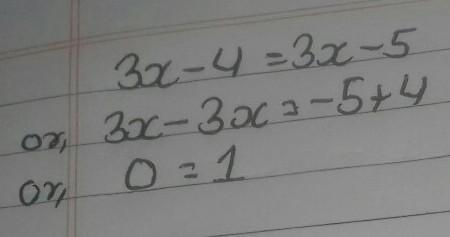 3x-4=3x-5
or, 3x-3x=-5+4
or, 0=1